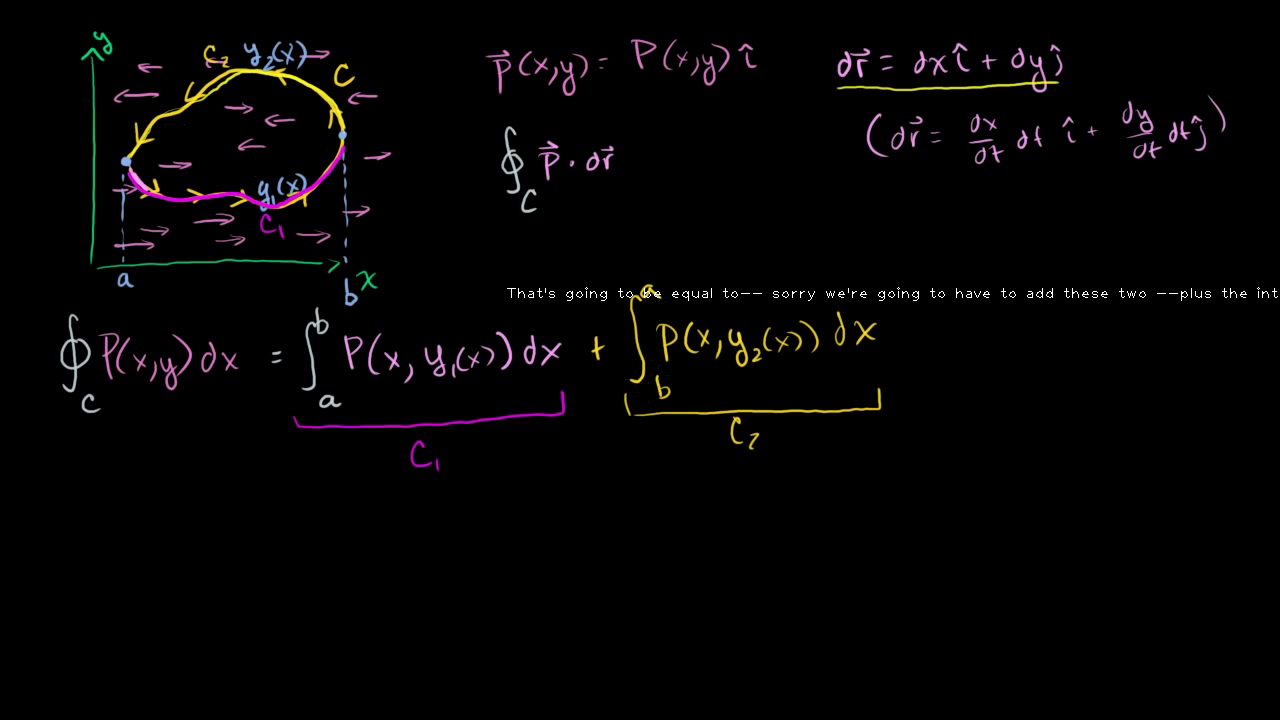 y
C₂ y₂(x)
C
y₁(x)
C₁
a
b
x
p⃗(x,y) = P(x,y) î
∮_C p⃗ · dr⃗
dr⃗ = dx î + dy ĵ
(dr⃗ = dx/dt dt î + dy/dt dt ĵ)
That's going to be equal to-- sorry we're going to have to add these two --plus the int
∮_C P(x,y) dx = ∫_a^b P(x, y₁(x)) dx + ∫_b^a P(x, y₂(x)) dx
C₁
C₂